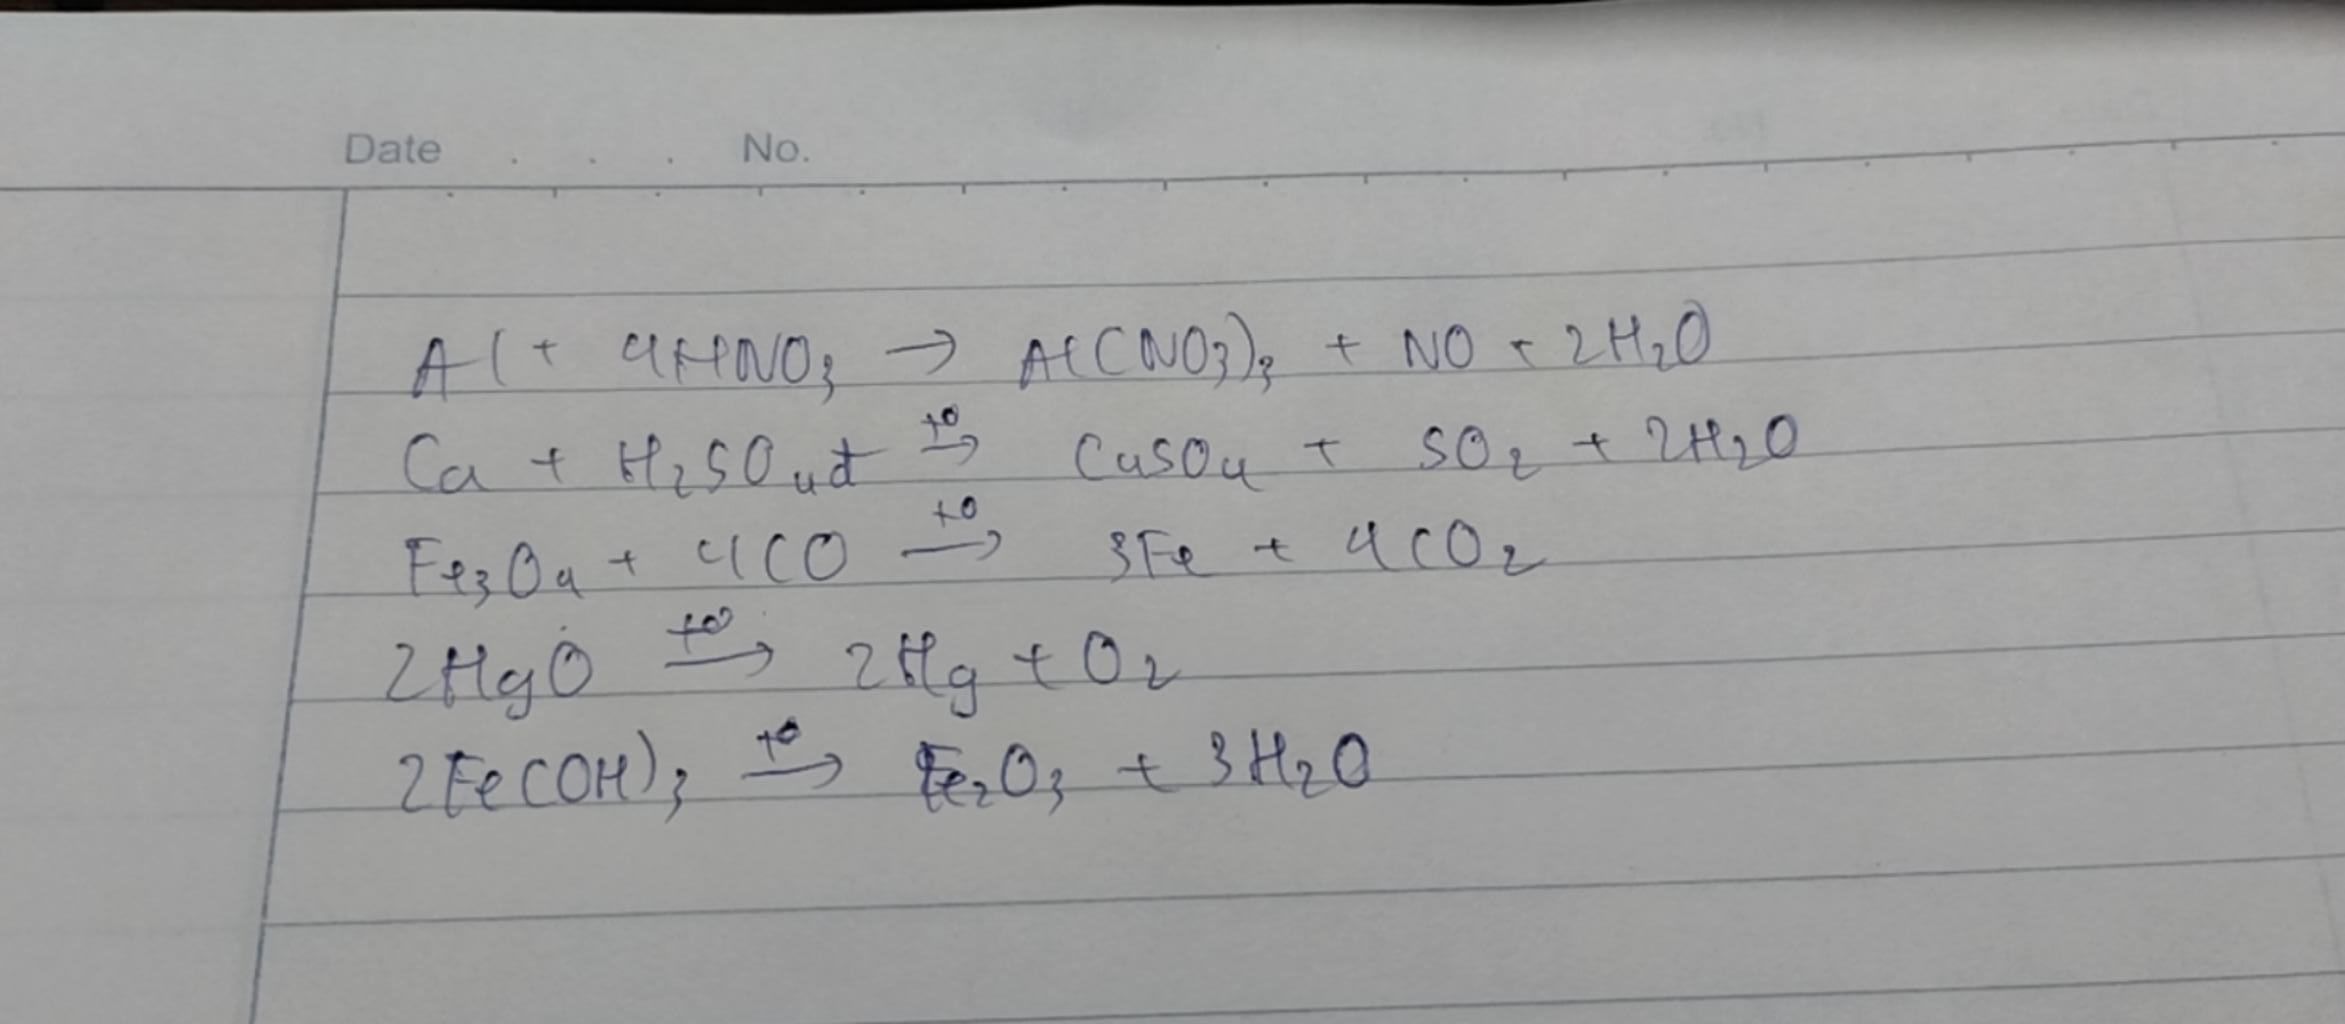 Date . . . No.
Al + 4HNO₃ → Al(NO₃)₃ + NO + 2H₂O
Ca + H₂SO₄đ t⁰→ CaSO₄ + SO₂ + 2H₂O
Fe₃O₄ + 4CO t⁰→ 3Fe + 4CO₂
2HgO t⁰→ 2Hg + O₂
2Fe(OH)₃ t⁰→ Fe₂O₃ + 3H₂O